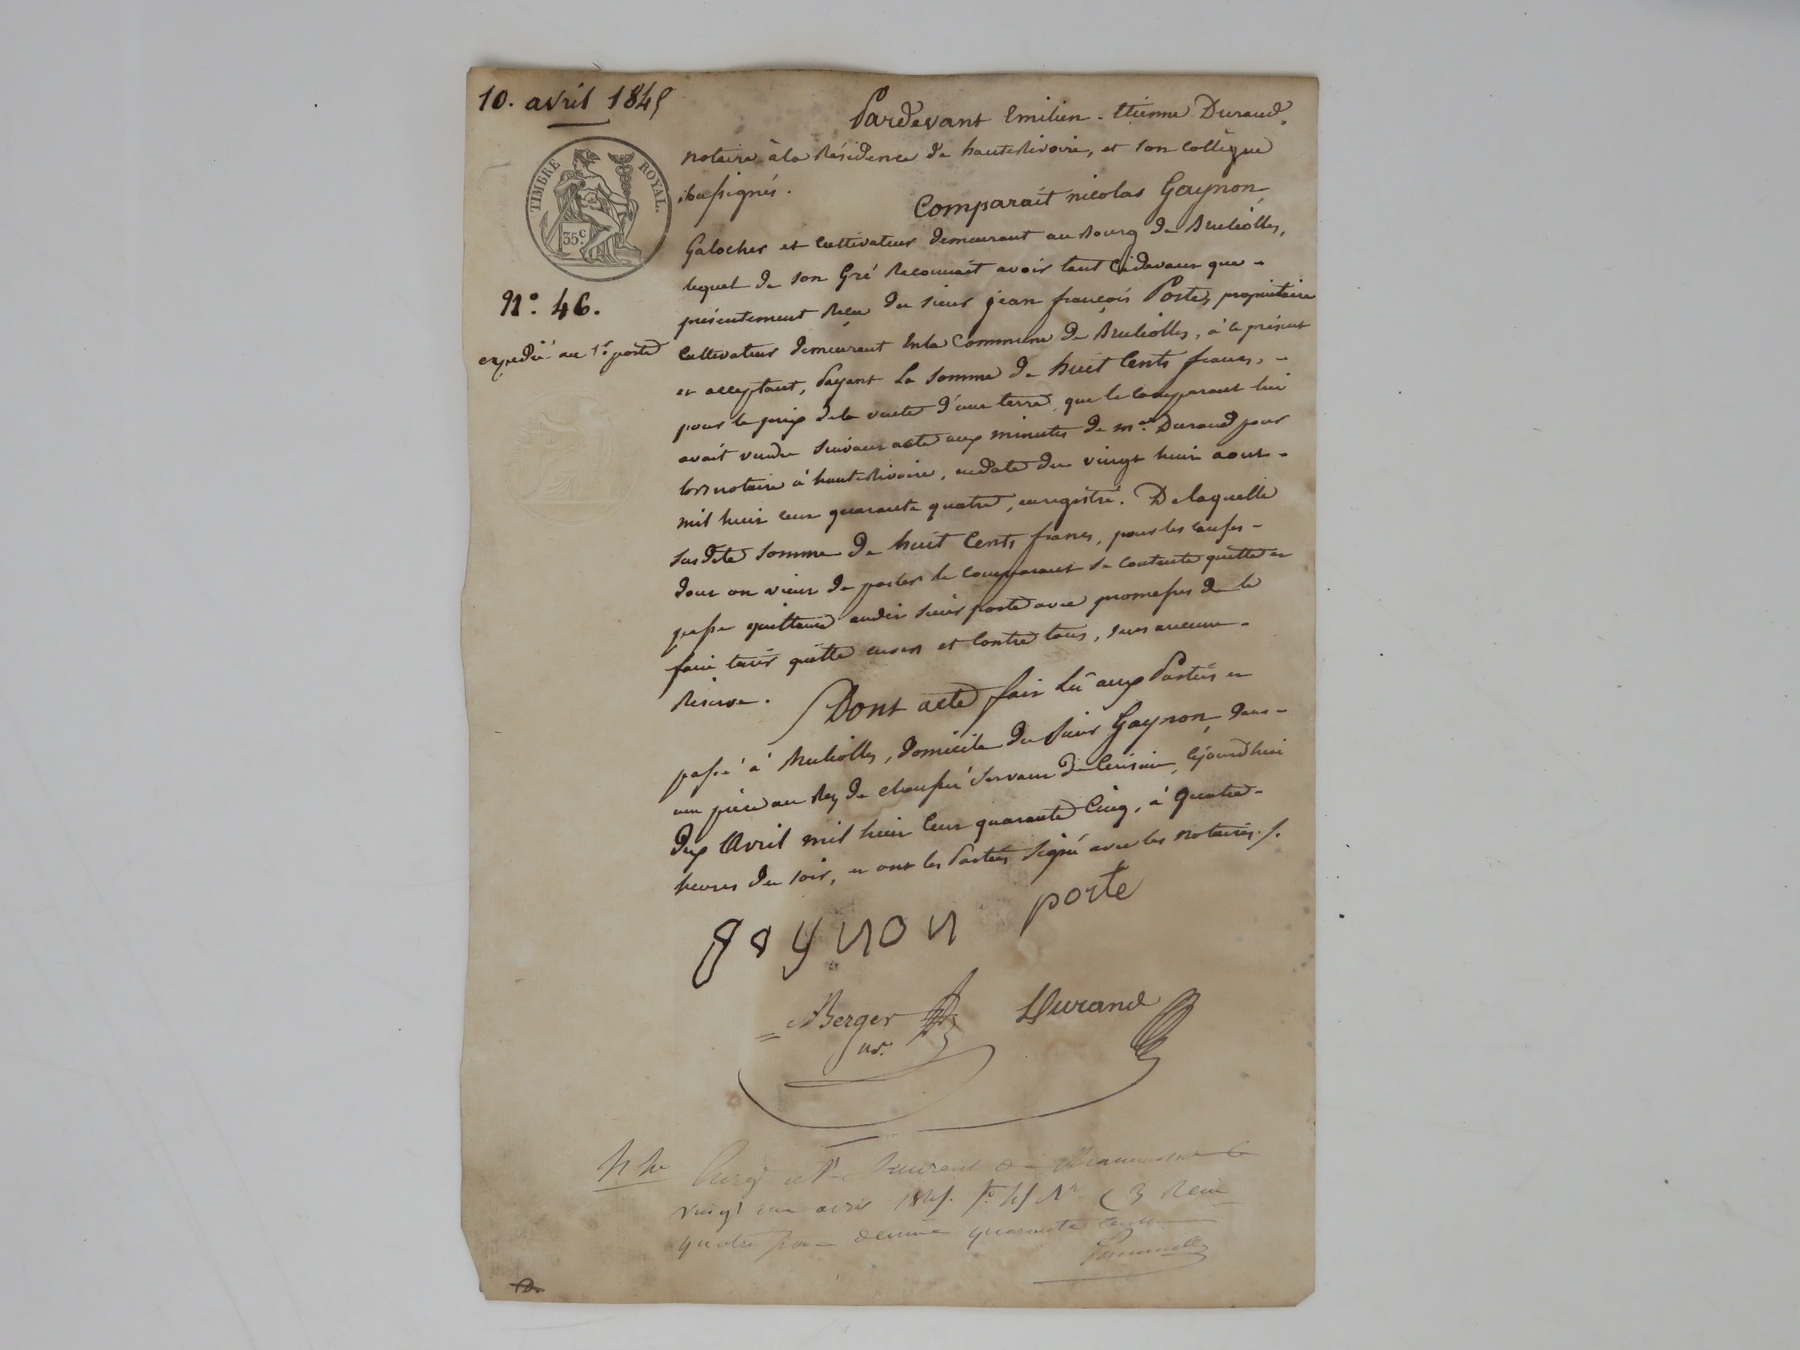 10. avril 1845
TIMBRE ROYAL.
35 c.
N.º 46.
expédié au sr. porte
Pardevant Emilien-Etienne Durand,
notaire à la Résidence de hauterivoire, et son collègue
soussignés.
Comparait nicolas Gaynon,
Galocher et cultivateur demeurant au Bourg de Brulioles,
lequel de son Gré Reconnait avoir tant cidevant que
présentement Reçu du sieur jean françois Porte, propriétaire
cultivateur demeurant en la Commune de Brulioles, à ce présent
et acceptant, Payant La somme de huit Cents francs,
pour le prix de la vente d'une terre que le comparant lui
avait vendu suivant acte aux minutes de me. Durand pour
lors notaire à hauterivoire, en date du vingt huit aout
mil huit cent quarante quatre, enregistré. De laquelle
susdite somme de huit Cents francs, pour les causes
dont on vient de parler le comparant se contente quitte et
passe quittance audit sieur porte avec promesses de le
faire tenir quitte envers et contre tous, sans aucune
Réserve.
Dont acte fait Lu aux Parties et
passé à Brulioles, domicile du sieur Gaynon, dans
une pièce au Rez de chaussée servant de Cuisine, cejourd'hui
dix Avril mil huit Cent quarante Cinq, à Quatre
heures du soir, et ont les Parties signé avec les notaires./.
gaynon porte
Berger Durand
not.
vingt un avril 1845. fo. No C 3 Reçu
quatre francs décime quarante cent